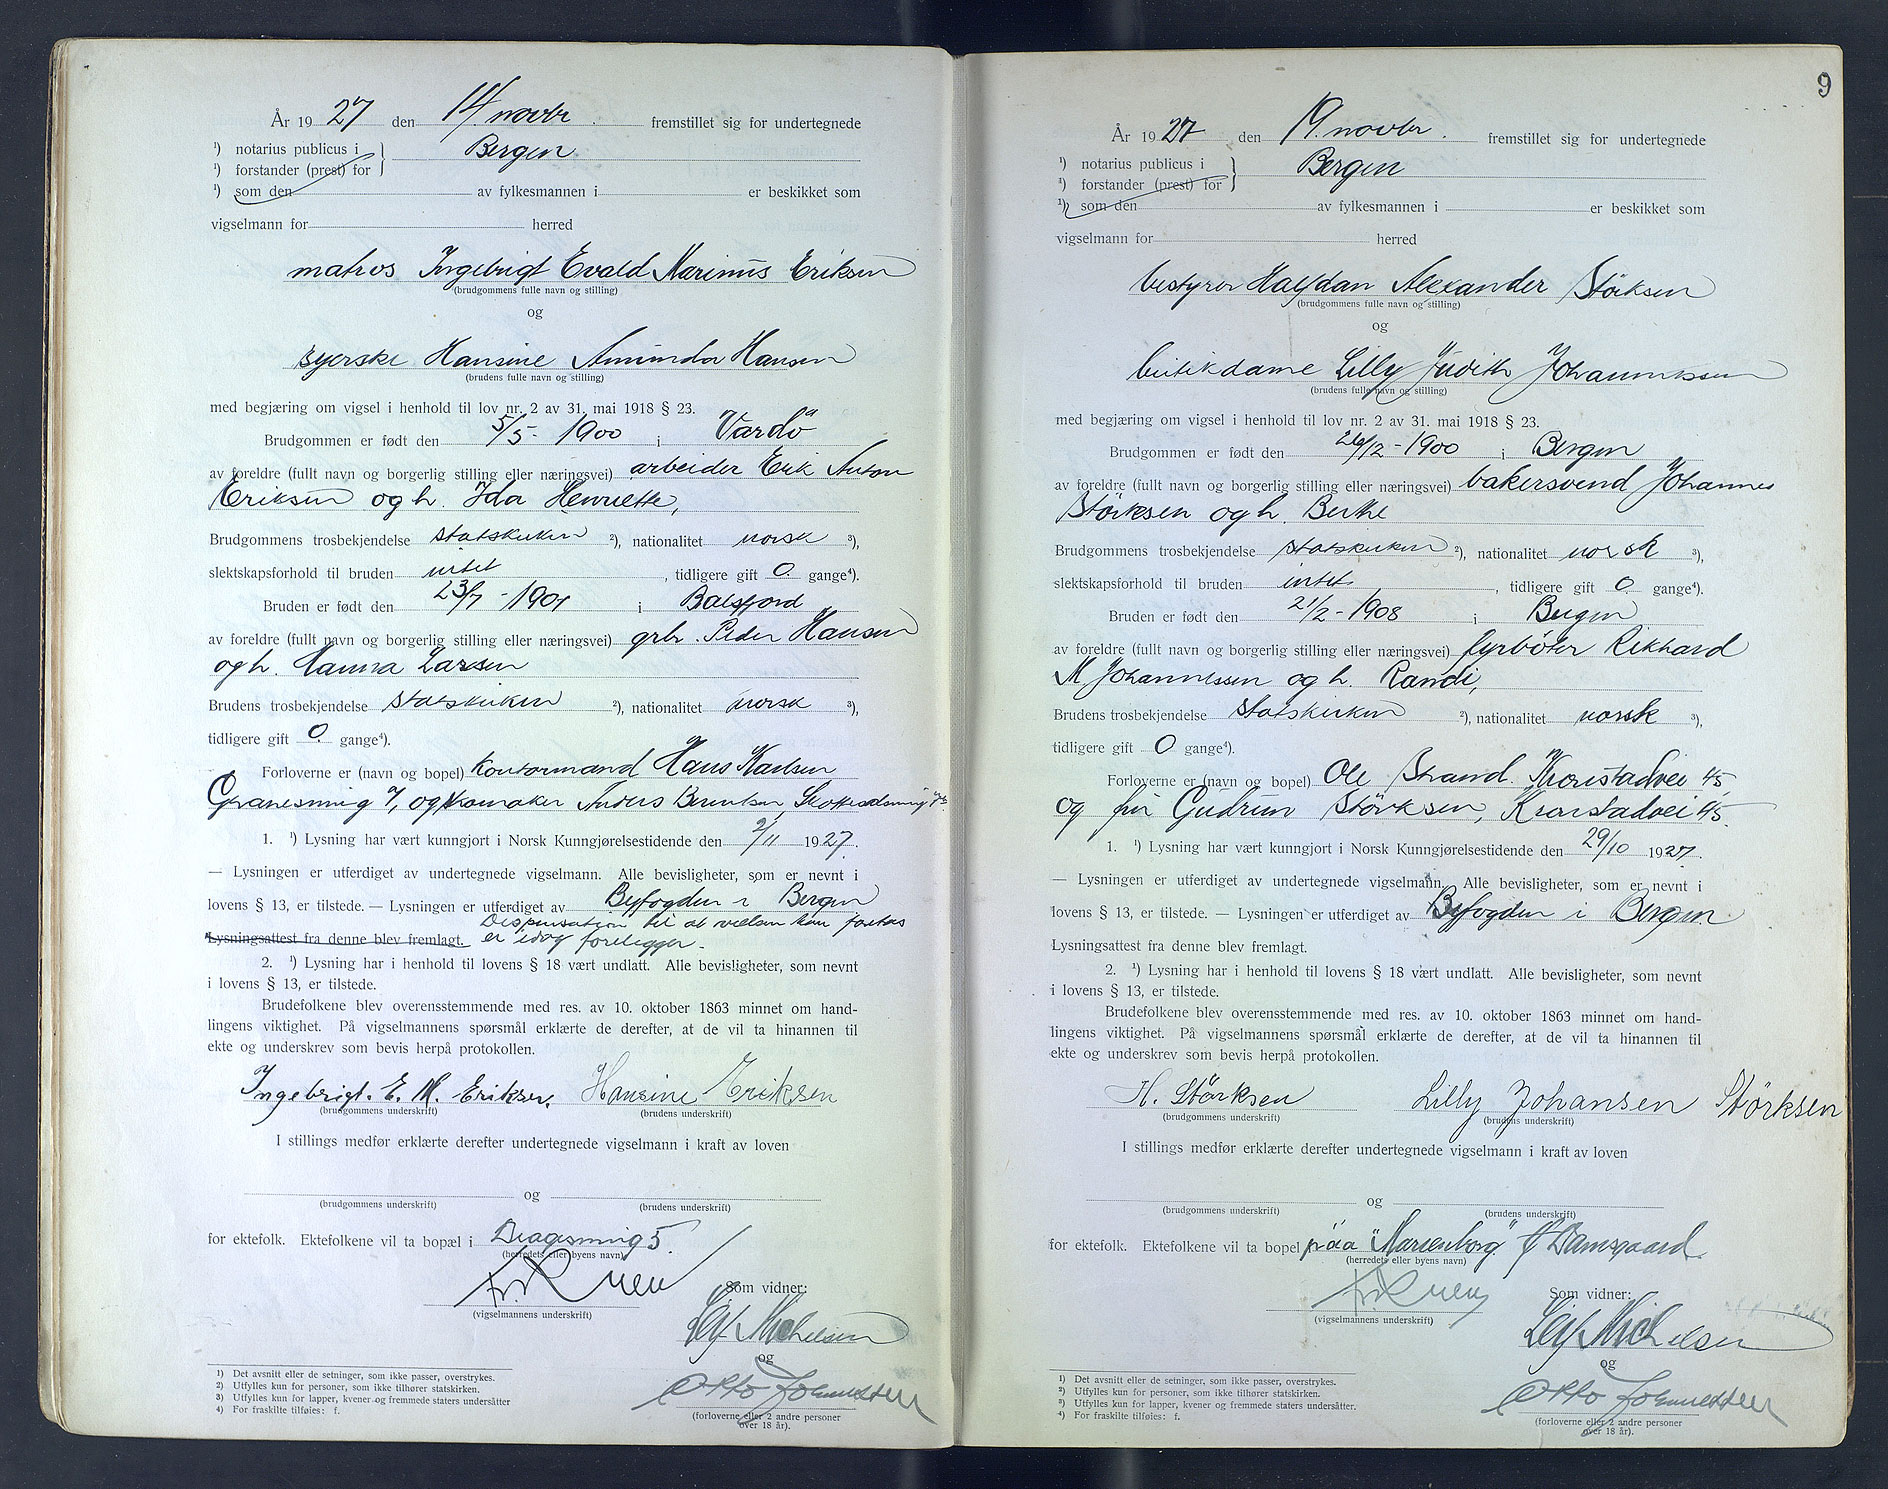 År 1927 den 14. novbr. fremstillet sig for undertegnede
¹) notarius publicus i
Bergen
¹) forstander (prest) for
¹) som den av fylkesmannen i er beskikket som
vigselmann for herred
matros Ingebrigt Evald Marinus Eriksen
(brudgommens fulle navn og stilling)
og
syerske Hansine Amunda Hansen
(brudens fulle navn og stilling)
med begjæring om vigsel i henhold til lov nr. 2 av 31. mai 1918 § 23.
Brudgommen er født den 5/5 - 1900 i Vardö
av foreldre (fullt navn og borgerlig stilling eller næringsvei) arbeider Erik Anton
Eriksen og h. Ida Henriette,
Brudgommens trosbekjendelse statskirken ²), nationalitet norsk ³),
slektskapsforhold til bruden intet, tidligere gift 0 gange⁴).
Bruden er født den 23/7 - 1901 i Balsfjord
av foreldre (fullt navn og borgerlig stilling eller næringsvei) grbr. Peder Hansen
og h. Hanna Larsen
Brudens trosbekjendelse statskirken ²), nationalitet norsk ³),
tidligere gift 0 gange⁴).
Forloverne er (navn og bopel) kontormand Hans Karlsen
og Anders Berntsen
1. ¹) Lysning har vært kunngjort i Norsk Kunngjørelsestidende den 2/11 1927.
— Lysningen er utferdiget av undertegnede vigselmann. Alle bevisligheter, som er nevnt i
lovens § 13, er tilstede. — Lysningen er utferdiget av Byfogden i Bergen
Dispensation til at vielsen kan foretas
Lysningsattest fra denne blev fremlagt. er idag foreligger.
2. ¹) Lysning har i henhold til lovens § 18 vært undlatt. Alle bevisligheter, som nevnt
i lovens § 13, er tilstede.
Brudefolkene blev overensstemmende med res. av 10. oktober 1863 minnet om hand-
lingens viktighet. På vigselmannens spørsmål erklærte de derefter, at de vil ta hinannen til
ekte og underskrev som bevis herpå protokollen.
Ingebrigt. E. M. Eriksen. Hansine Eriksen
(brudgommens underskrift) (brudens underskrift)
I stillings medfør erklærte derefter undertegnede vigselmann i kraft av loven
og
(brudgommens underskrift) (brudens underskrift)
for ektefolk. Ektefolkene vil ta bopæl i Dragesmug 5.
(herredets eller byens navn)
Som vidner:
(vigselmannens underskrift)
Leif Michelsen
og
Otto Johannessen
(forloverne eller 2 andre personer
over 18 år).
¹) Det avsnitt eller de setninger, som ikke passer, overstrykes.
²) Utfylles kun for personer, som ikke tilhører statskirken.
³) Utfylles kun for lapper, kvener og fremmede staters undersåtter
⁴) For fraskilte tilføies: f.
9
År 1927 den 19. novbr. fremstillet sig for undertegnede
¹) notarius publicus i
Bergen
¹) forstander (prest) for
¹) som den av fylkesmannen i er beskikket som
vigselmann for herred
bestyrer Halfdan Alexander Störksen
(brudgommens fulle navn og stilling)
og
butikdame Lilly Judith Johannessen
(brudens fulle navn og stilling)
med begjæring om vigsel i henhold til lov nr. 2 av 31. mai 1918 § 23.
Brudgommen er født den 26/12 - 1900 i Bergen
av foreldre (fullt navn og borgerlig stilling eller næringsvei) bakersvend Johannes
Störksen og h. Berthe
Brudgommens trosbekjendelse statskirken ²), nationalitet norsk ³),
slektskapsforhold til bruden intet, tidligere gift 0 gange⁴).
Bruden er født den 21/2 - 1908 i Bergen
av foreldre (fullt navn og borgerlig stilling eller næringsvei) fyrböter Rikhard
M. Johannessen og h. Randi,
Brudens trosbekjendelse statskirken ²), nationalitet norsk ³),
tidligere gift 0 gange⁴).
Forloverne er (navn og bopel) Ole Strand. Kronstadvei 45
og fru Gudrun Störksen, Kronstadvei 45.
1. ¹) Lysning har vært kunngjort i Norsk Kunngjørelsestidende den 29/10 1927.
— Lysningen er utferdiget av undertegnede vigselmann. Alle bevisligheter, som er nevnt i
lovens § 13, er tilstede. — Lysningen er utferdiget av Byfogden i Bergen.
Lysningsattest fra denne blev fremlagt.
2. ¹) Lysning har i henhold til lovens § 18 vært undlatt. Alle bevisligheter, som nevnt
i lovens § 13, er tilstede.
Brudefolkene blev overensstemmende med res. av 10. oktober 1863 minnet om hand-
lingens viktighet. På vigselmannens spørsmål erklærte de derefter, at de vil ta hinannen til
ekte og underskrev som bevis herpå protokollen.
H. Störksen Lilly Johansen Störksen
(brudgommens underskrift) (brudens underskrift)
I stillings medfør erklærte derefter undertegnede vigselmann i kraft av loven
og
(brudgommens underskrift) (brudens underskrift)
for ektefolk. Ektefolkene vil ta bopel paa "Marienborg" Damsgaard.
(herredets eller byens navn)
Som vidner:
(vigselmannens underskrift)
Leif Michelsen
og
Otto Johannessen
(forloverne eller 2 andre personer
over 18 år).
¹) Det avsnitt eller de setninger, som ikke passer, overstrykes.
²) Utfylles kun for personer, som ikke tilhører statskirken.
³) Utfylles kun for lapper, kvener og fremmede staters undersåtter.
⁴) For fraskilte tilføies: f.